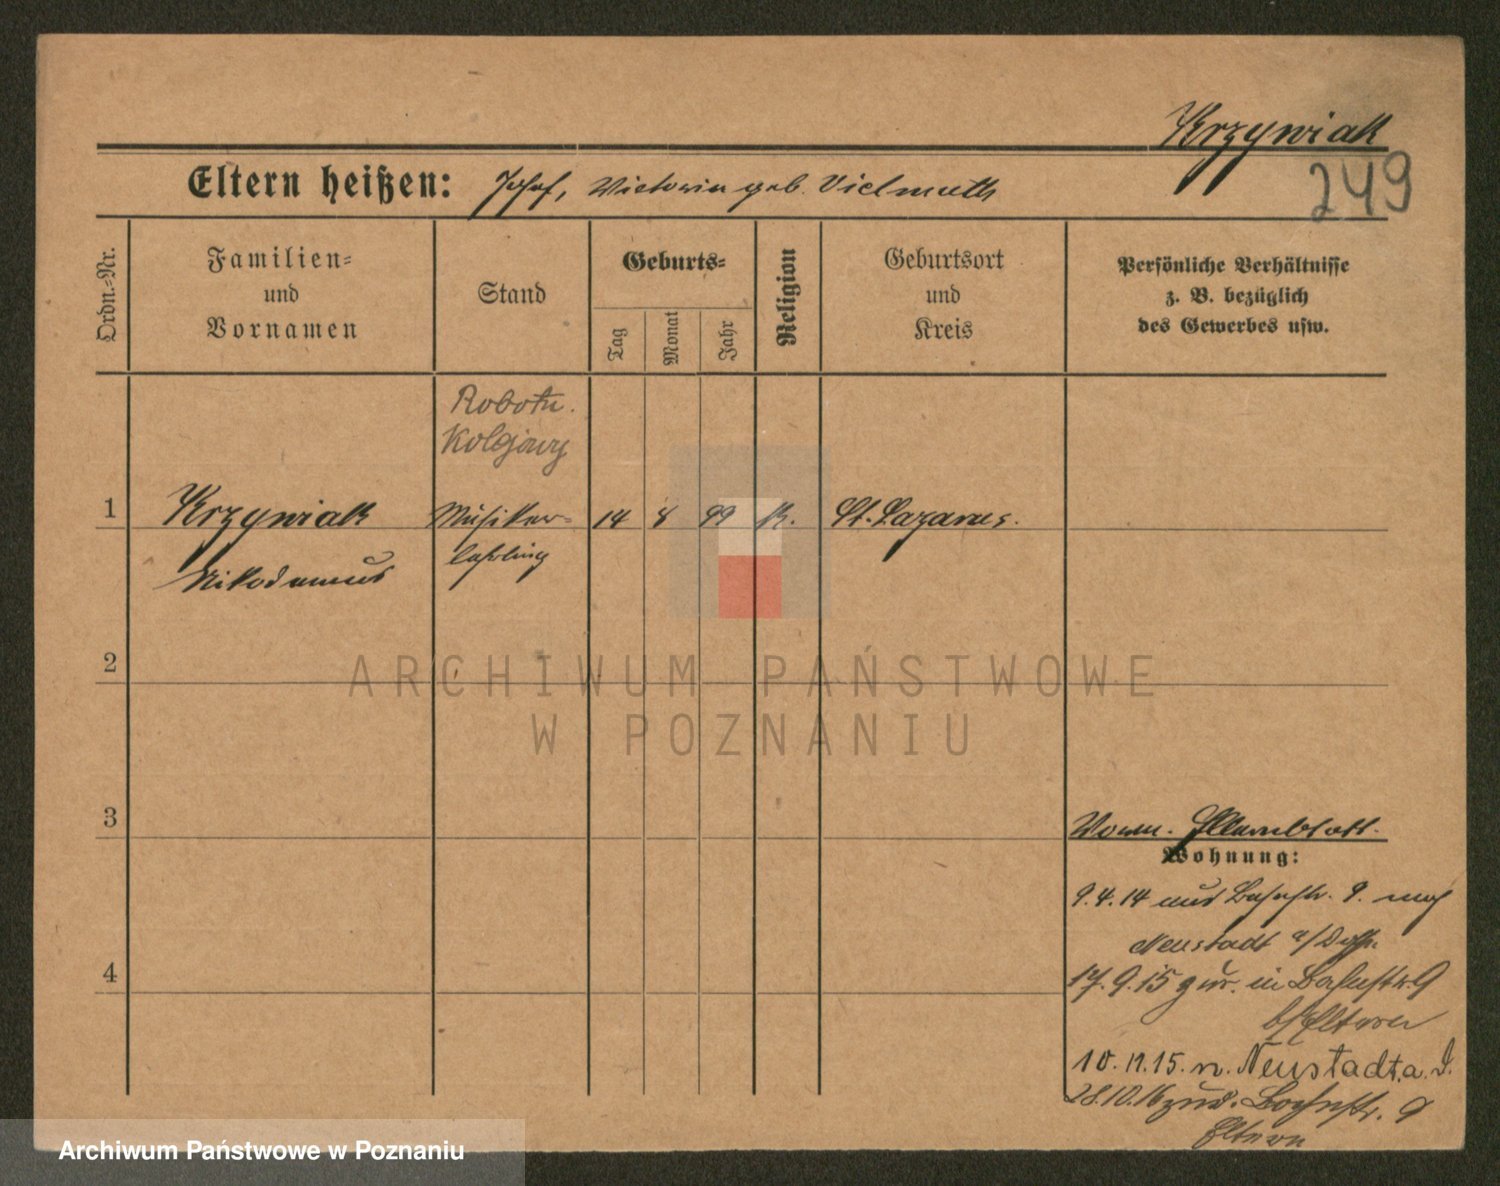 Krzywiak
249
Eltern heißen: Josef, Victoria geb. Vielmuth
Ordn.=Nr.
Familien=
und
Vornamen
Stand
Geburts=
Tag
Monat
Jahr
Religion
Geburtsort
und
Kreis
Persönliche Verhältnisse
z. B. bezüglich
des Gewerbes usw.
Robotn.
Kolejowy
1 Krzywiak Musiker= 14 8 99 k. St. Lazarus.
Nikodemus lehrling
2
3
Vorm. Elternblatt.
Wohnung:
9.4.14 aus Bahnstr. 9. nach
Neustadt a/
4
17.9.15 zur. in Bahnstr. 9
b/Eltern
10.11.15. n. Neustadt a.
28.10.16 zur. Bahnstr. 9
Eltern
ARCHIWUM PAŃSTWOWE
W POZNANIU
Archiwum Państwowe w Poznaniu